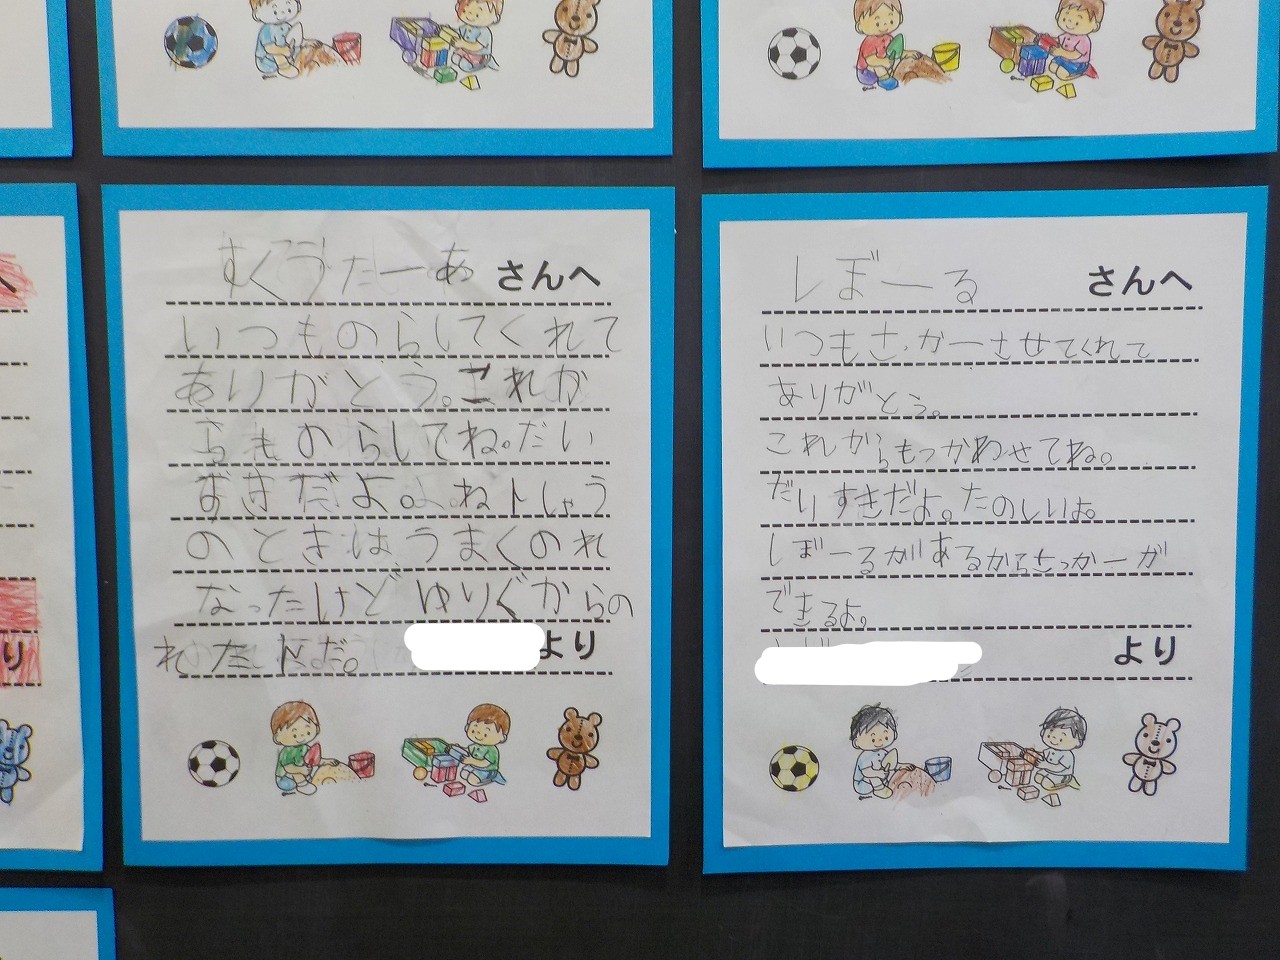 すくうたーあ さんへ
いつものらしてくれて
ありがとう。これか
らものらしてね。だい
すきだよ。ねトしょう
のときはうまくのれ
なったけど ゆりぐからの
れたトだ。
より
しぼーる さんへ
いつもさっかーさせてくれて
ありがとう。
これからもつかわせてね。
だりすきだよ。たのしいよ。
しぼーるがあるからさっかーが
できるよ。
より
り